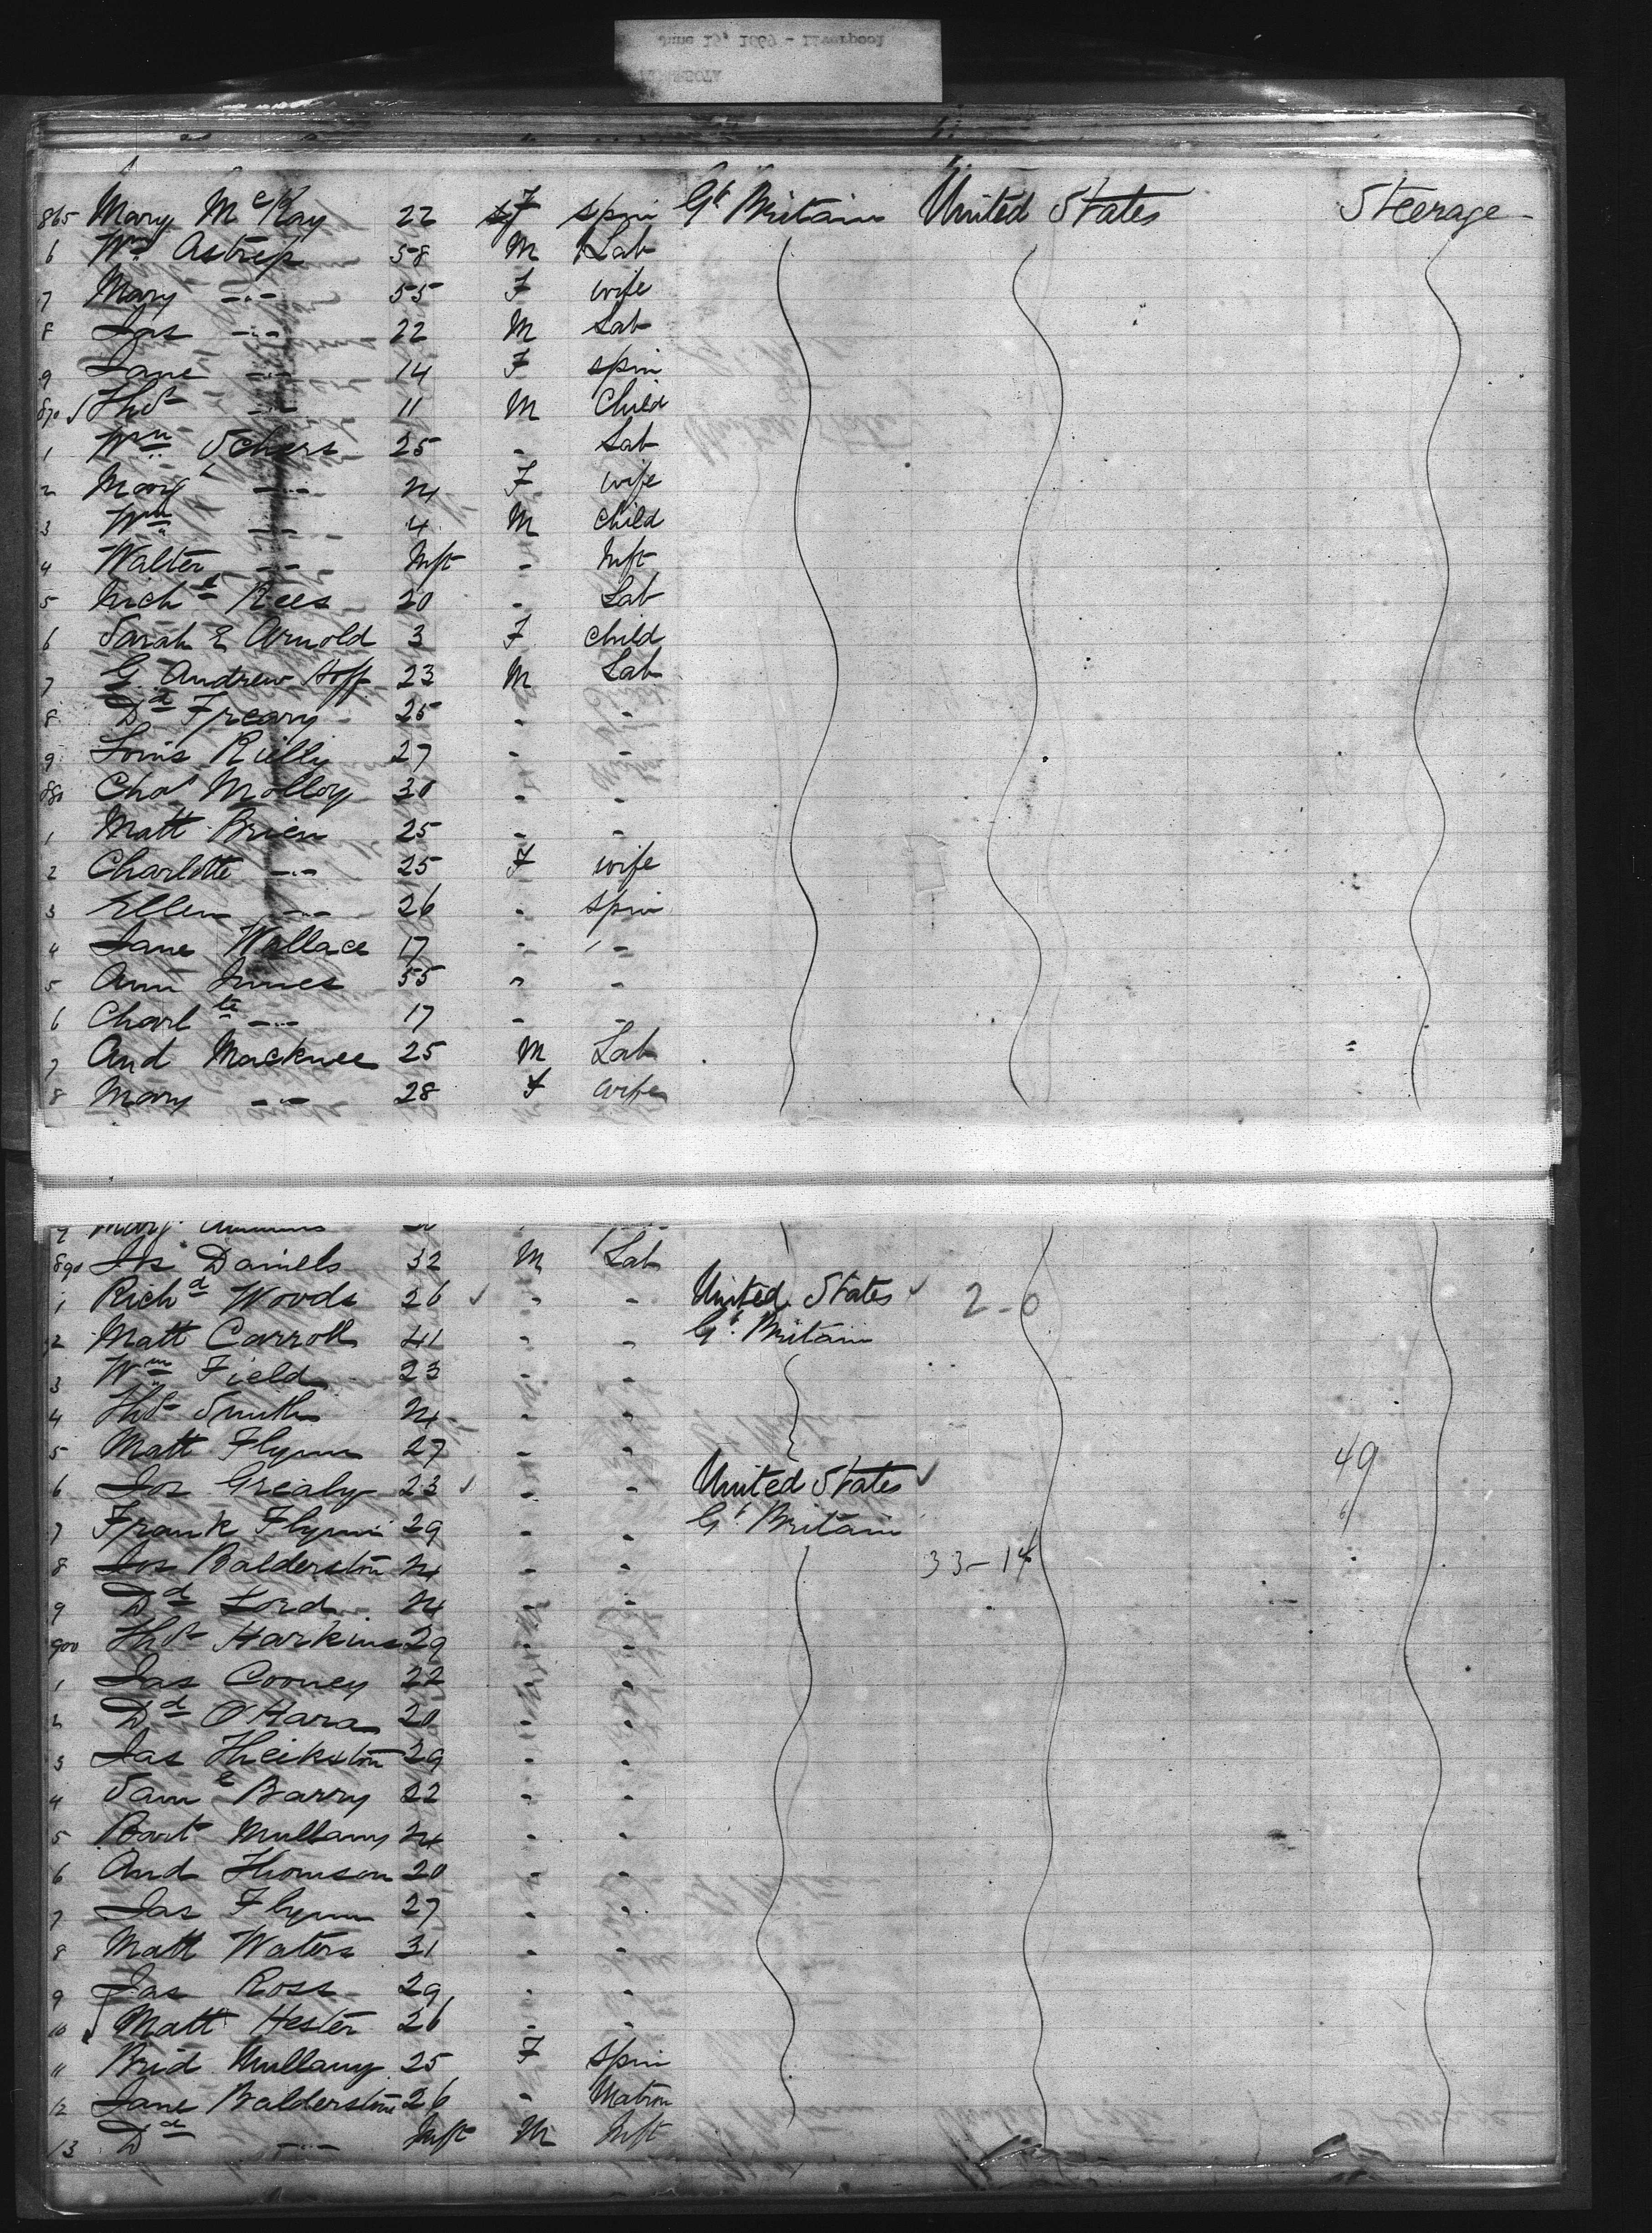 June 15, 1869 - Liverpool
865 Mary McKay 22 F spin Gt Britain United States Steerage
6 Wm Astrep 58 M Lab
7 Mary -"- 55 F wife
8 Jas -"- 22 M Lab
9 Jane -"- 14 F spin
870 Thos -"- 11 M Child
1 Wm 25 - Lab
2 Mary -"- 24 F wife
3 Wm -"- 4 M child
4 Walter -"- Inft - Inft
5 Richd Rees 20 - Lab
6 Sarah E Arnold 3 F child
7 G Andrew Hoff 23 M Lab
8 Dd Freary 25 - -
9 Louis Rielly 27 - -
880 Chas Molloy 30 - -
1 Matt Brien 25 - -
2 Charlotte -"- 25 F wife
3 Ellen -"- 26 - spin
4 Jane Wallace 17 - -
5 Ann Innes 55 - -
6 Charlte -"- 17 - -
7 And Macknee 25 M Lab
8 Mary -"- 28 F wife
9 Mary
890 Jos Daniells 32 M Lab
1 Richd Woods 26 ✓ - - United States ✓ 2-0
2 Matt Carroll 41 - - Gt Britain
3 Wm Field 23 - -
4 Thos Smith 24 - -
5 Matt Flynn 27 - - 49
6 Jos Grealy 23 ✓ - - United States ✓
7 Frank Flynn 29 - - Gt Britain
8 Jos Balderston 24 - - 33-14
9 Dd Lord 24 - -
900 Thos Harkins 29 - -
1 Jas Cooney 22 - -
2 Dd O'Hara 20 - -
3 Jas 29 - -
4 Saml Barry 22 - -
5 Bart Mullany 24 - -
6 And Thomson 20 - -
7 Jas Flynn 27 - -
8 Matt Waters 31 - -
9 Jas Ross 29 - -
10 Matt Hester 26 - -
11 Brid Mullany 25 F Spin
12 Jane Balderstone 26 - Matron
13 Dd -"- Inft M Inft